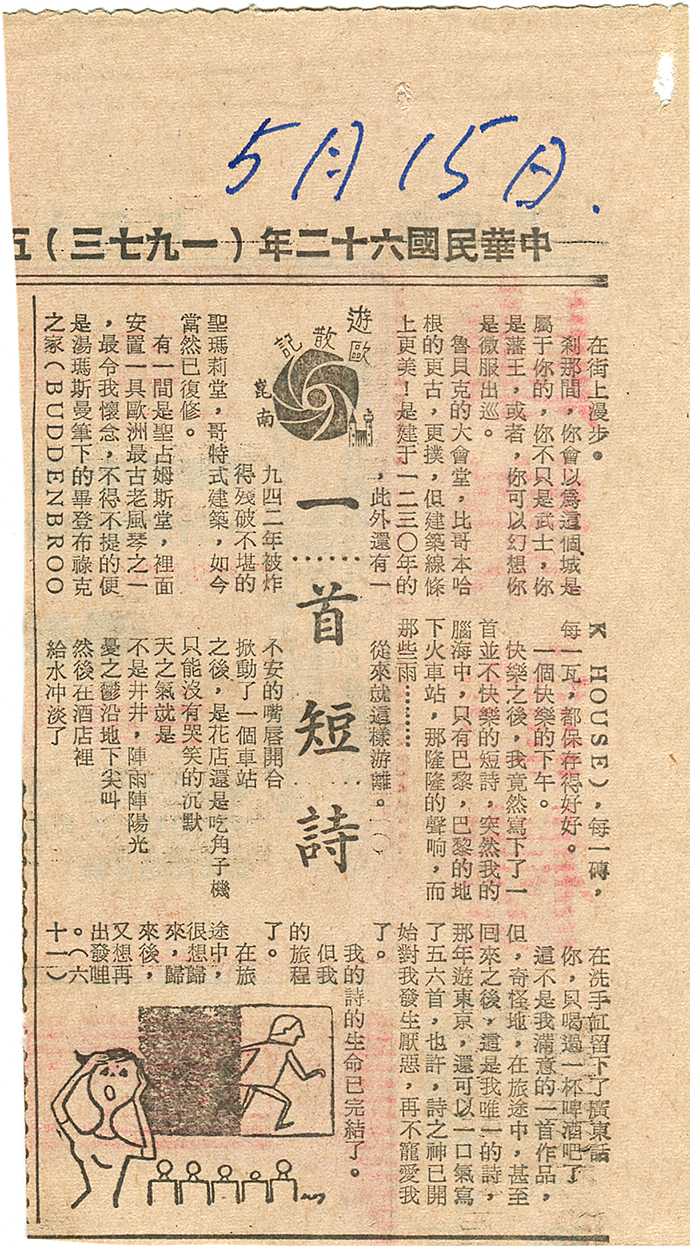 5月15日.
中華民國六十二年（一九七三）五
遊歐散記
崑南
一首短詩
在街上漫步。
剎那間，你會以為這個城是
屬于你的，你不只是武士，你
是藩王，或者，你可以幻想你
是微服出巡。
魯貝克的大會堂，比哥本哈
根的更古，更撲，但建築線條
上更美！是建于一二三〇年的
，此外還有一
九四二年被炸
得殘破不堪的
聖瑪莉堂，哥特式建築，如今
當然已復修。
有一間是聖占姆斯堂，裡面
安置一具歐洲最古老風琴之一
，最令我懷念，不得不提的便
是湯瑪斯曼筆下的畢登布祿克
之家（BUDDENBROO
K HOUSE），每一磚，
每一瓦，都保存得好好。
一個快樂的下午。
快樂之後，我竟然寫下了一
首並不快樂的短詩，突然我的
腦海中，只有巴黎，巴黎的地
下火車站，那隆隆的聲响，而
那些雨………
從來就這樣游離。
不安的嘴唇開合
掀動了一個車站
之後，是花店還是吃角子機
只能沒有哭笑的沉默
天之氣就是
不是井井，陣雨陣陽光
憂之鬱沿地下尖叫
然後在酒店裡
給水冲淡了
在洗手缸留下了廣東話
你，只喝過一杯啤酒吧了
這不是我滿意的一首作品，
但，奇怪地，在旅途中，甚至
回來之後，這是我唯一的詩，
那年遊東京，還可以一口氣寫
了五六首，也許，詩之神已開
始對我發生厭惡，再不寵愛我
了。
我的詩的生命已完結了。
但我
的旅程
了。
在旅
途中，
很想歸
來，歸
來後，
又想再
出發哩
。（六
十一）